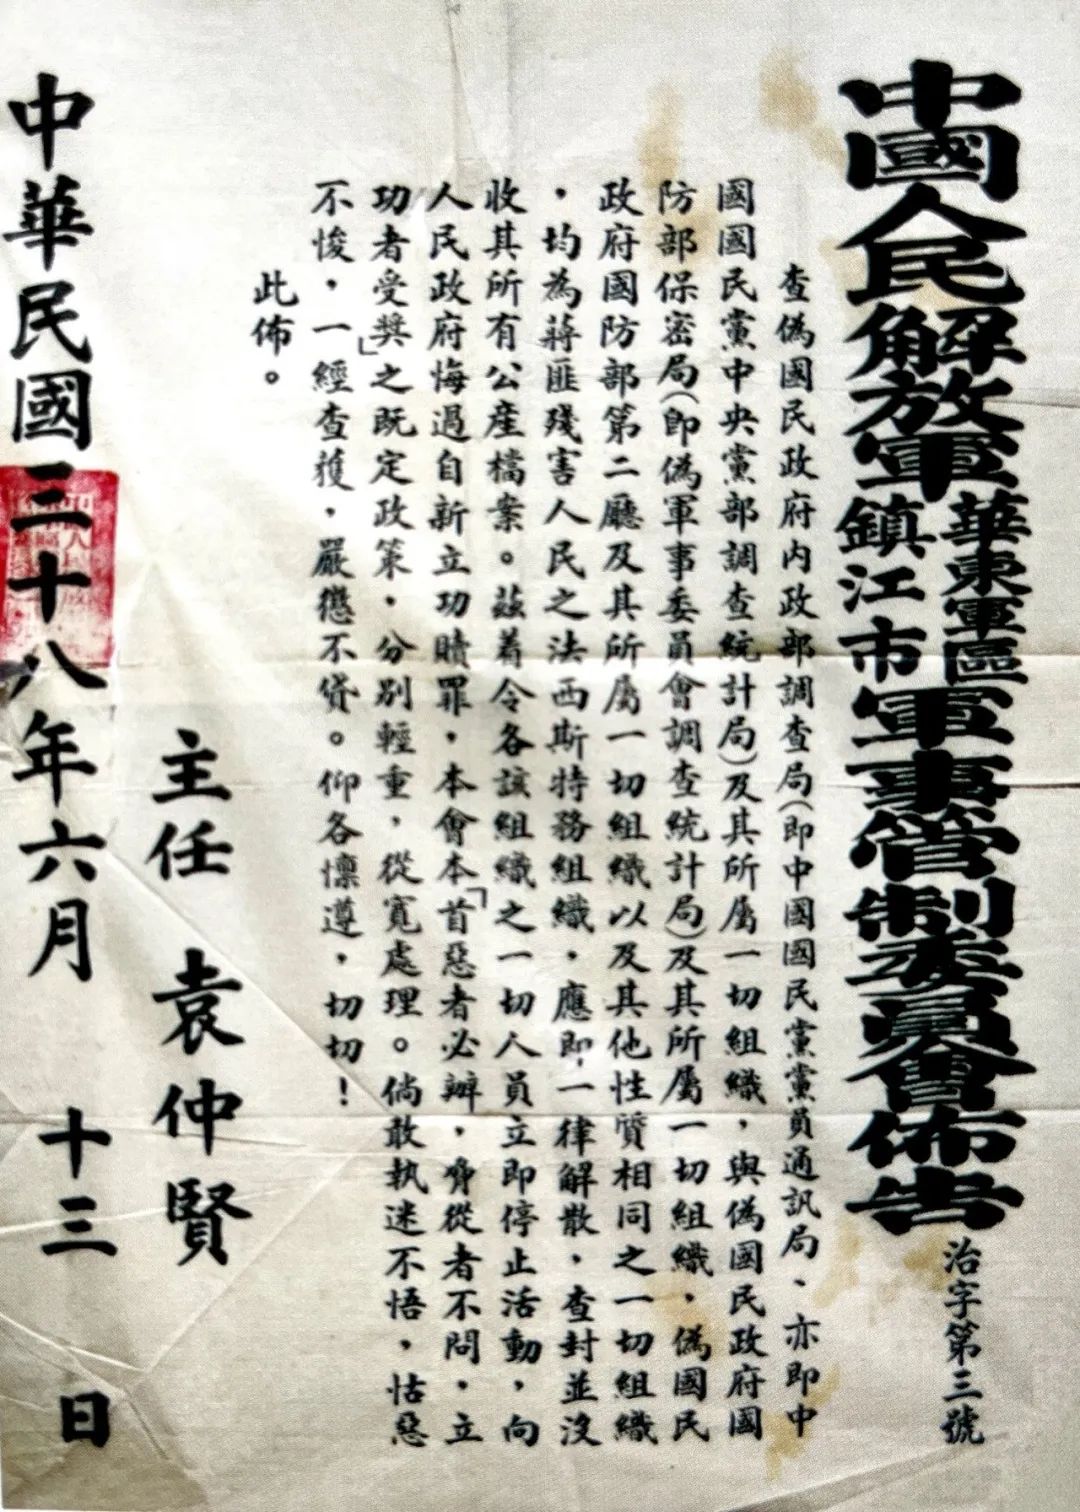 中國人民解放軍華東軍區鎮江市軍事管制委員會佈告
治字第三號
查偽國民政府內政部調查局(即中國國民黨黨員通訊局、亦即中
國國民黨中央黨部調查統計局)及其所屬一切組織，與偽國民政府國
防部保密局(即偽軍事委員會調查統計局)及其所屬一切組織，偽國民
政府國防部第二廳及其所屬一切組織以及其他性質相同之一切組織
，均為蔣匪殘害人民之法西斯特務組織，應即一律解散，查封並沒
收其所有公產檔案。茲着令各該組織之一切人員立即停止活動，向
人民政府悔過自新立功贖罪，本會本「首惡者必辦，脅從者不問，立
功者受獎」之既定政策，分別輕重，從寬處理。倘敢執迷不悟，怙惡
不悛，一經查獲，嚴懲不貸。仰各懍遵，切切！
此佈。
主任 袁仲賢
中華民國三十八年六月 十三 日